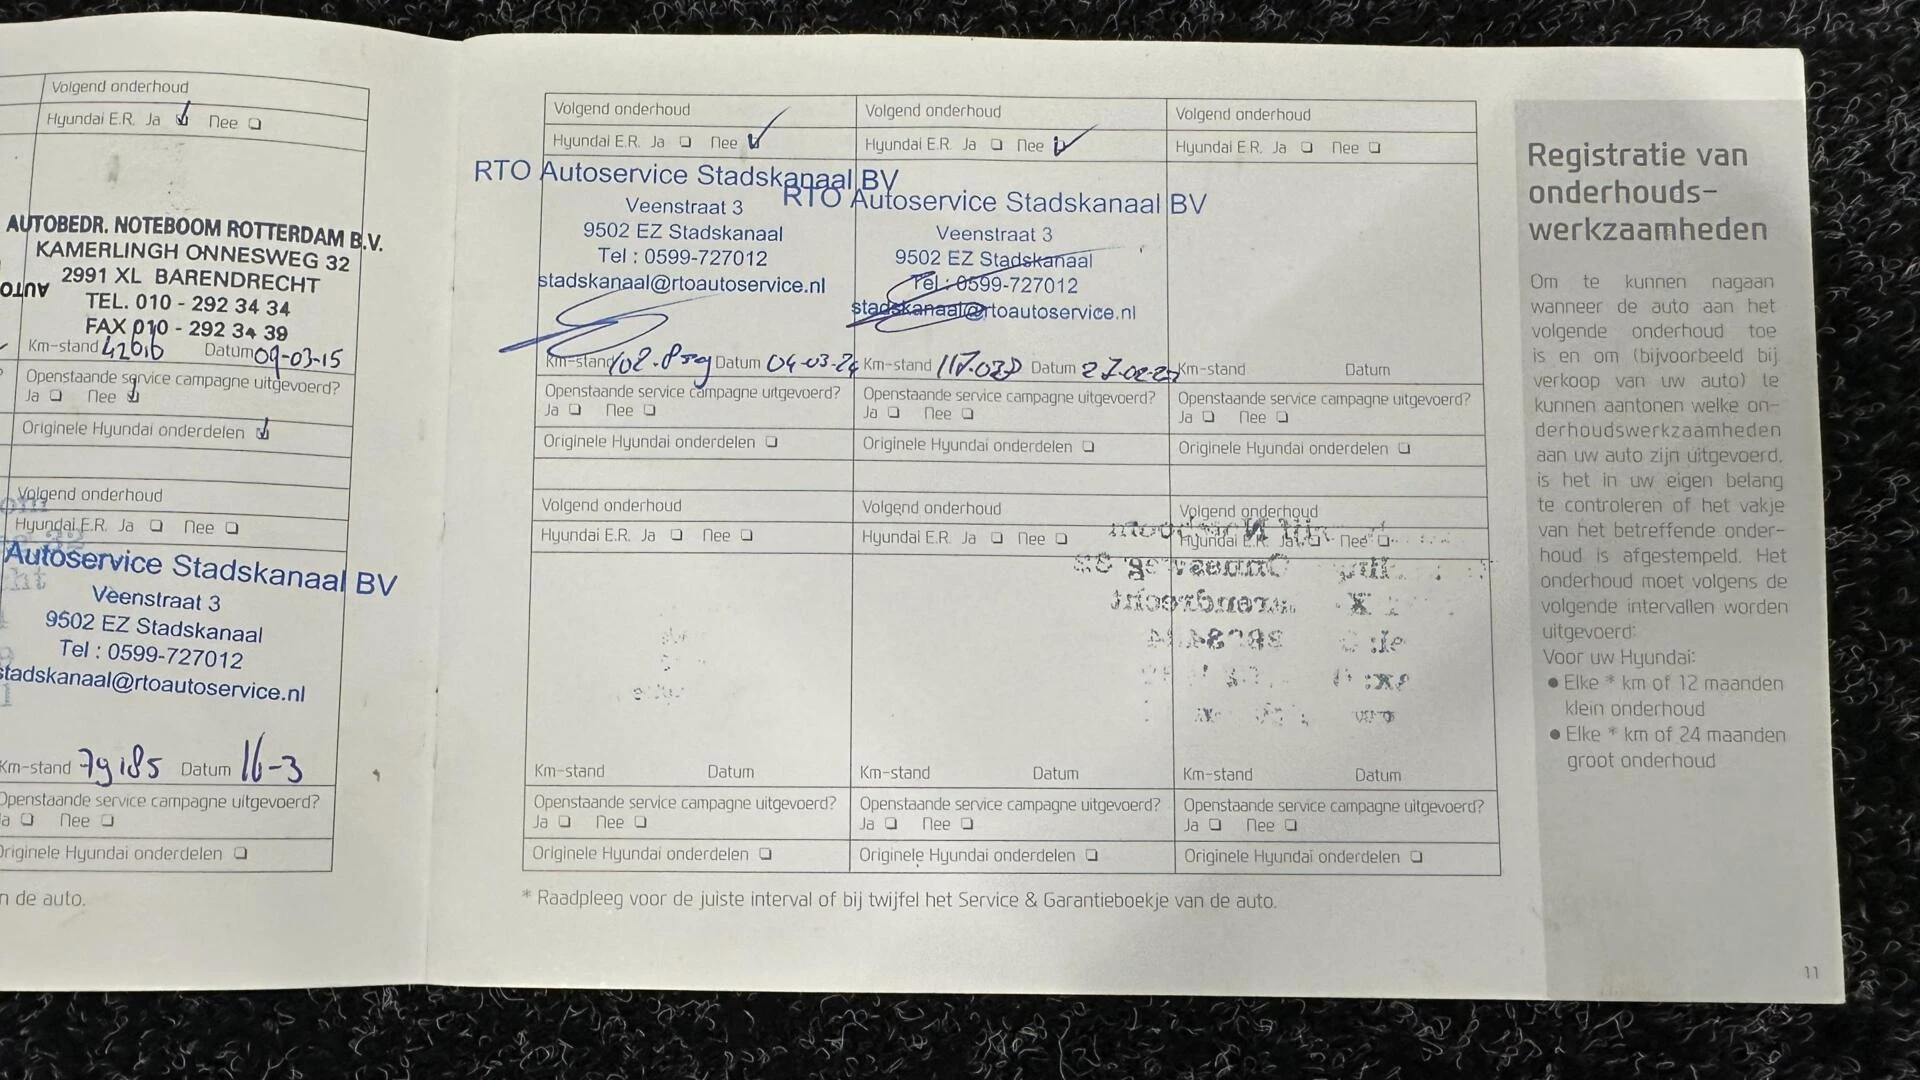 Volgend onderhoud
Hyundai E.R. Ja Nee
AUTOBEDR. NOTEBOOM ROTTERDAM B.V.
KAMERLINGH ONNESWEG 32
2991 XL BARENDRECHT
AUTO
TEL. 010 - 292 34 34
FAX 010 - 292 34 39
Km-stand 42616 Datum 09-03-15
Openstaande service campagne uitgevoerd?
Ja Nee
Originele Hyundai onderdelen
Volgend onderhoud
Hyundai E.R. Ja Nee
Autoservice Stadskanaal BV
Veenstraat 3
9502 EZ Stadskanaal
Tel : 0599-727012
stadskanaal@rtoautoservice.nl
Km-stand 79185 Datum 16-3
Openstaande service campagne uitgevoerd?
Ja Nee
Originele Hyundai onderdelen
n de auto.
Volgend onderhoud
Hyundai E.R. Ja Nee
RTO Autoservice Stadskanaal BV
Veenstraat 3
9502 EZ Stadskanaal
Tel : 0599-727012
stadskanaal@rtoautoservice.nl
Km-stand Datum 04-03-24
Openstaande service campagne uitgevoerd?
Ja Nee
Originele Hyundai onderdelen
Volgend onderhoud
Hyundai E.R. Ja Nee
RTO Autoservice Stadskanaal BV
Veenstraat 3
9502 EZ Stadskanaal
Tel : 0599-727012
stadskanaal@rtoautoservice.nl
Km-stand Datum
Openstaande service campagne uitgevoerd?
Ja Nee
Originele Hyundai onderdelen
Volgend onderhoud
Hyundai E.R. Ja Nee
Km-stand Datum
Openstaande service campagne uitgevoerd?
Ja Nee
Originele Hyundai onderdelen
Volgend onderhoud
Hyundai E.R. Ja Nee
Km-stand Datum
Openstaande service campagne uitgevoerd?
Ja Nee
Originele Hyundai onderdelen
Volgend onderhoud
Hyundai E.R. Ja Nee
Km-stand Datum
Openstaande service campagne uitgevoerd?
Ja Nee
Originele Hyundai onderdelen
Volgend onderhoud
Hyundai E.R. Ja Nee
Km-stand Datum
Openstaande service campagne uitgevoerd?
Ja Nee
Originele Hyundai onderdelen
* Raadpleeg voor de juiste interval of bij twijfel het Service & Garantieboekje van de auto.
Registratie van
onderhouds-
werkzaamheden
Om te kunnen nagaan
wanneer de auto aan het
volgende onderhoud toe
is en om (bijvoorbeeld bij
verkoop van uw auto) te
kunnen aantonen welke on-
derhoudswerkzaamheden
aan uw auto zijn uitgevoerd,
is het in uw eigen belang
te controleren of het vakje
van het betreffende onder-
houd is afgestempeld. Het
onderhoud moet volgens de
volgende intervallen worden
uitgevoerd:
Voor uw Hyundai:
● Elke * km of 12 maanden
klein onderhoud
● Elke * km of 24 maanden
groot onderhoud
11